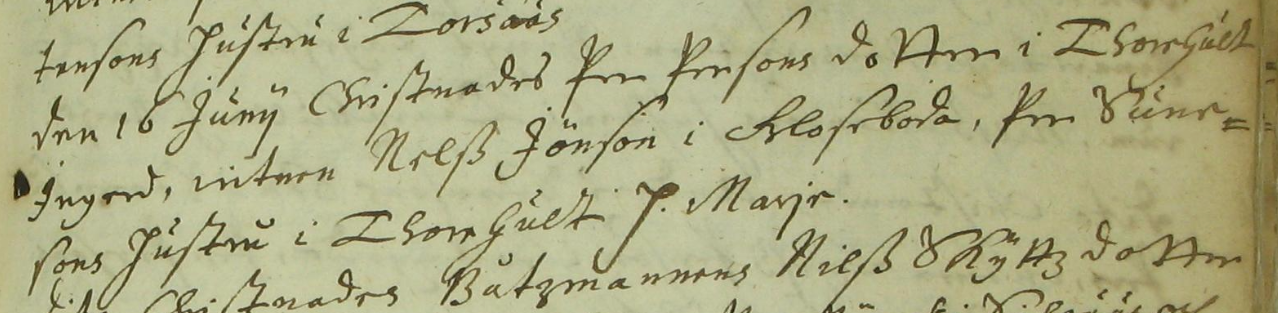 tensons hustru i Torsåås
den 16 Junij Christnades Per Persons dotter i Thorehult
Ingerd, witnen Nelß Jönson i Kloseboda, Per Sune=
sons hustru i Thorehult p. Marje.
dito Christnades Båtzmannens Nilß Skyttz dotter